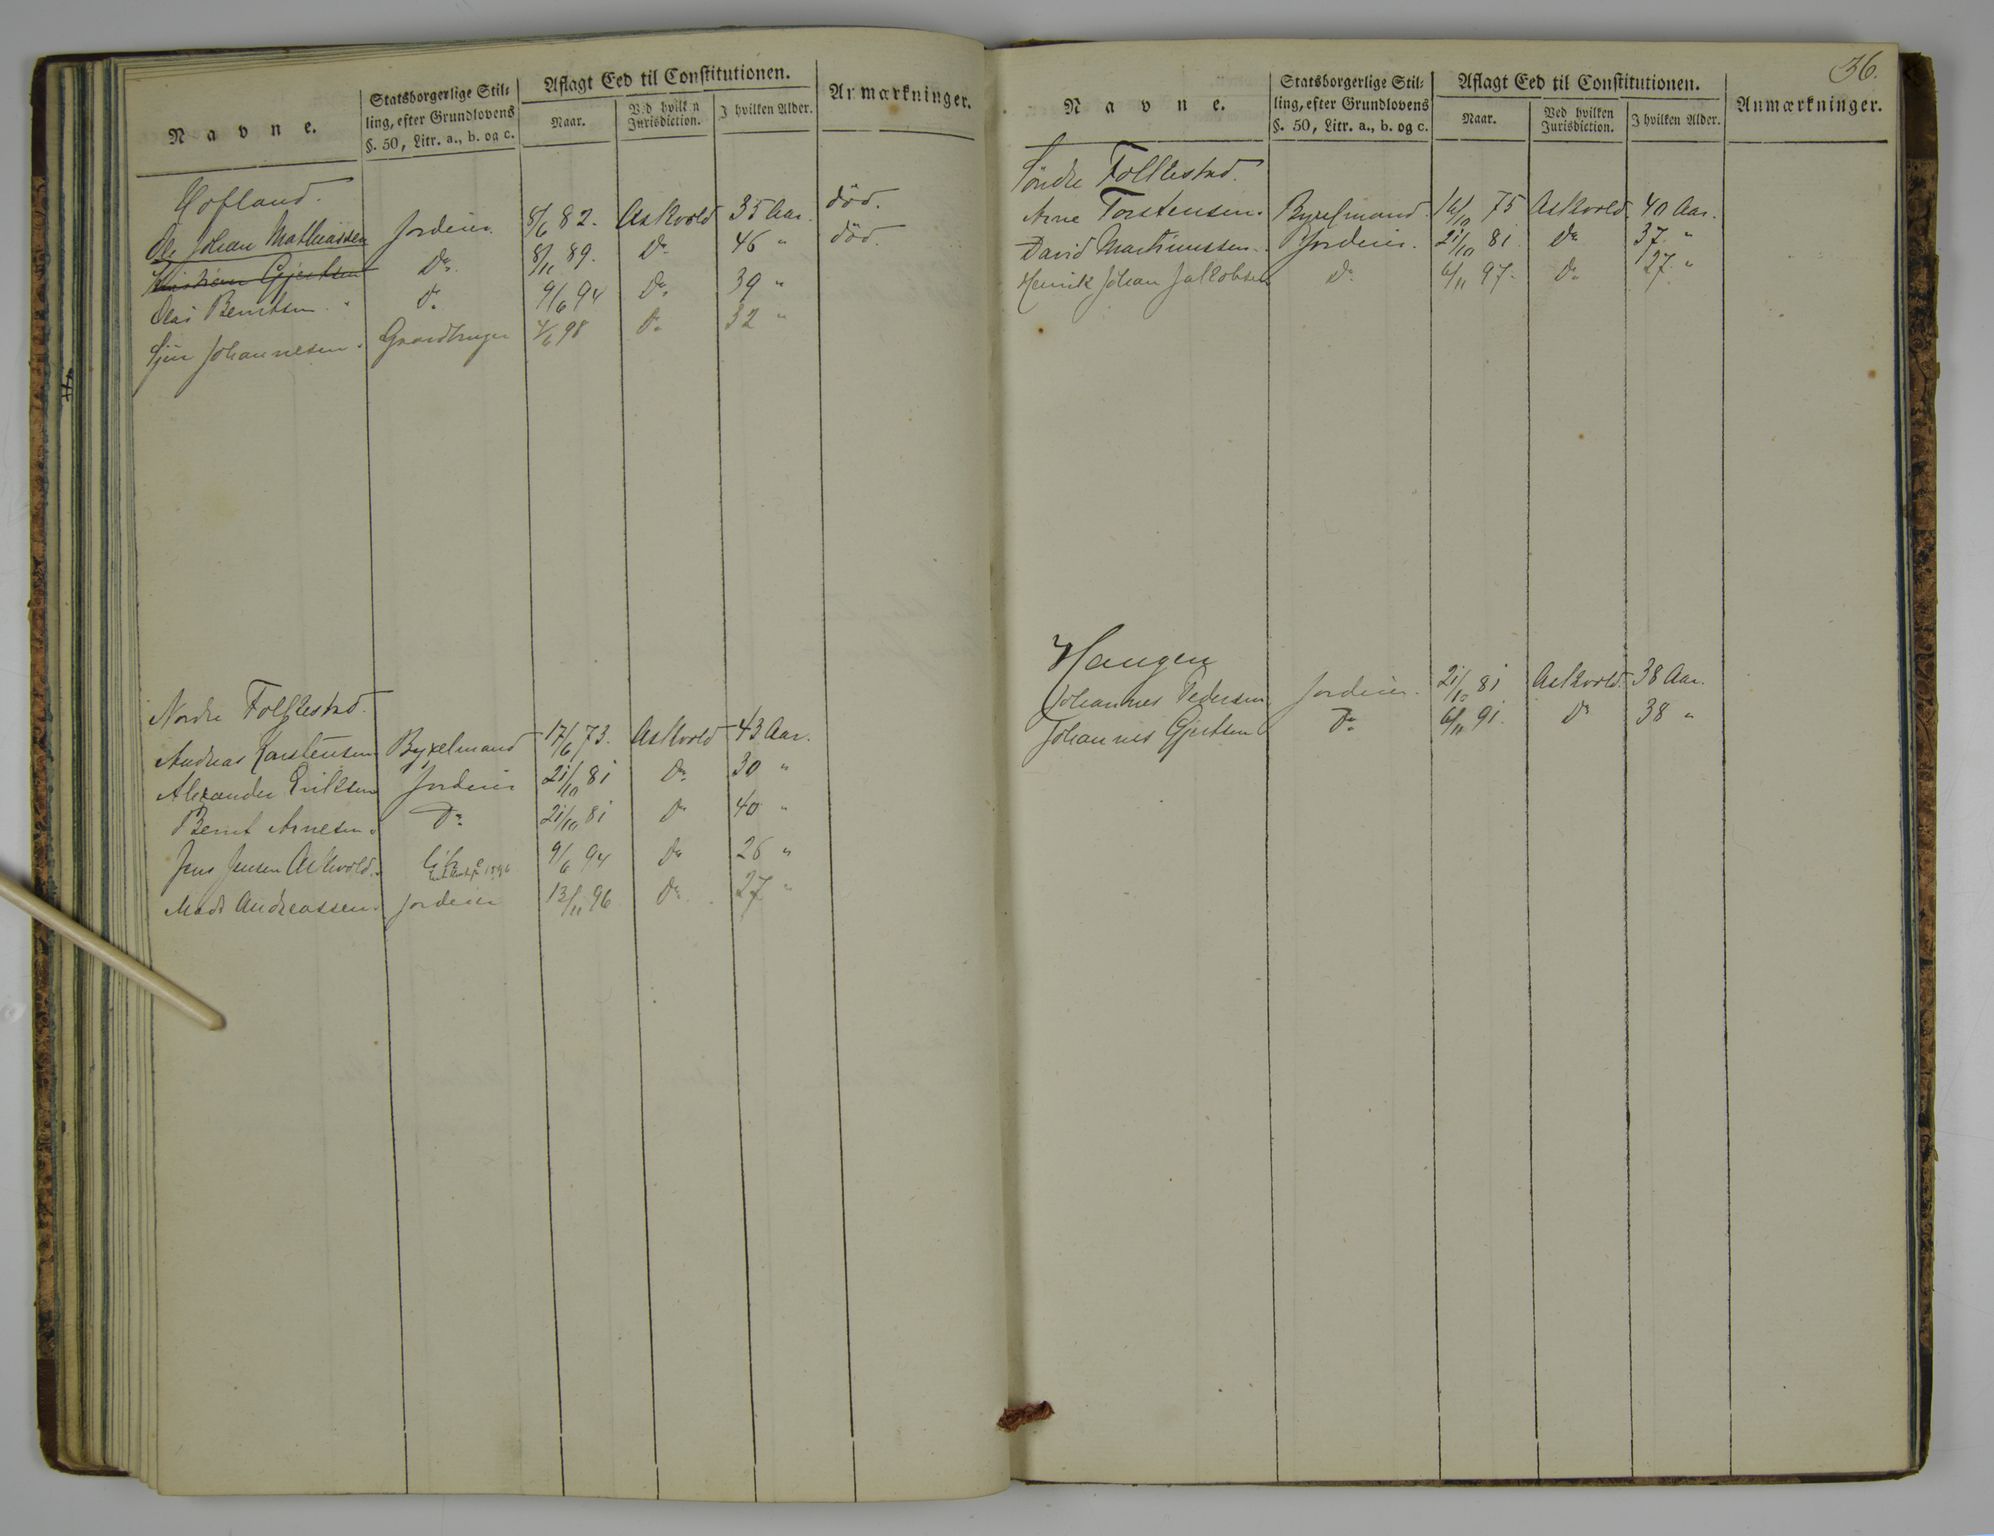 Navne.
Statsborgerlige Stil-
ling, efter Grundlovens
§. 50, Litr. a., b. og c.
Aflagt Eed til Constitutionen.
Naar.
Ved hvilken
Jurisdiction.
I hvilken Alder.
Anmærkninger.
Hofland.
Ole Johan Mathiassen Jordeier. 8/6 82. Askvold 35 Aar. död.
Kristian Gjertsen Do. 8/11 89. Do 46 " död.
Olai Berntsen Do 9/6 94 Do. 39 "
Sjur Johannesen Gaardbruger 4/6 98 Do 32 "
Nordre Folkestad.
Andreas Karstensen Byxelmand 17/6 73. Askvold 43 Aar.
Alexander Eriksen Jordeier 21/10 81 Do. 30 "
Bernt Arnesen. Do. 21/10 81 Do 40 "
Jens Jensen Askvold. 9/6 94 Do 26 "
Mads Andreassen. Jordeier 13/11 96 Do. 27 "
36.
Navne.
Statsborgerlige Stil-
ling, efter Grundlovens
§. 50, Litr. a., b. og c.
Aflagt Eed til Constitutionen.
Naar.
Ved hvilken
Jurisdiction.
I hvilken Alder.
Anmærkninger.
Söndre Folkestad.
Arne Torstensen. Byxelmand. 16/10 75 Askvold. 40 Aar.
David Martinussen. Jordeier. 21/10 81 Do 37 "
Henrik Johan Jakobsen Do 6/11 97. Do 27. "
Haugen
Johannes Pedersen Jordeier. 21/10 81 Askvold. 38 Aar.
Johannes Gjertsen Do 6/11 91. Do 38 "